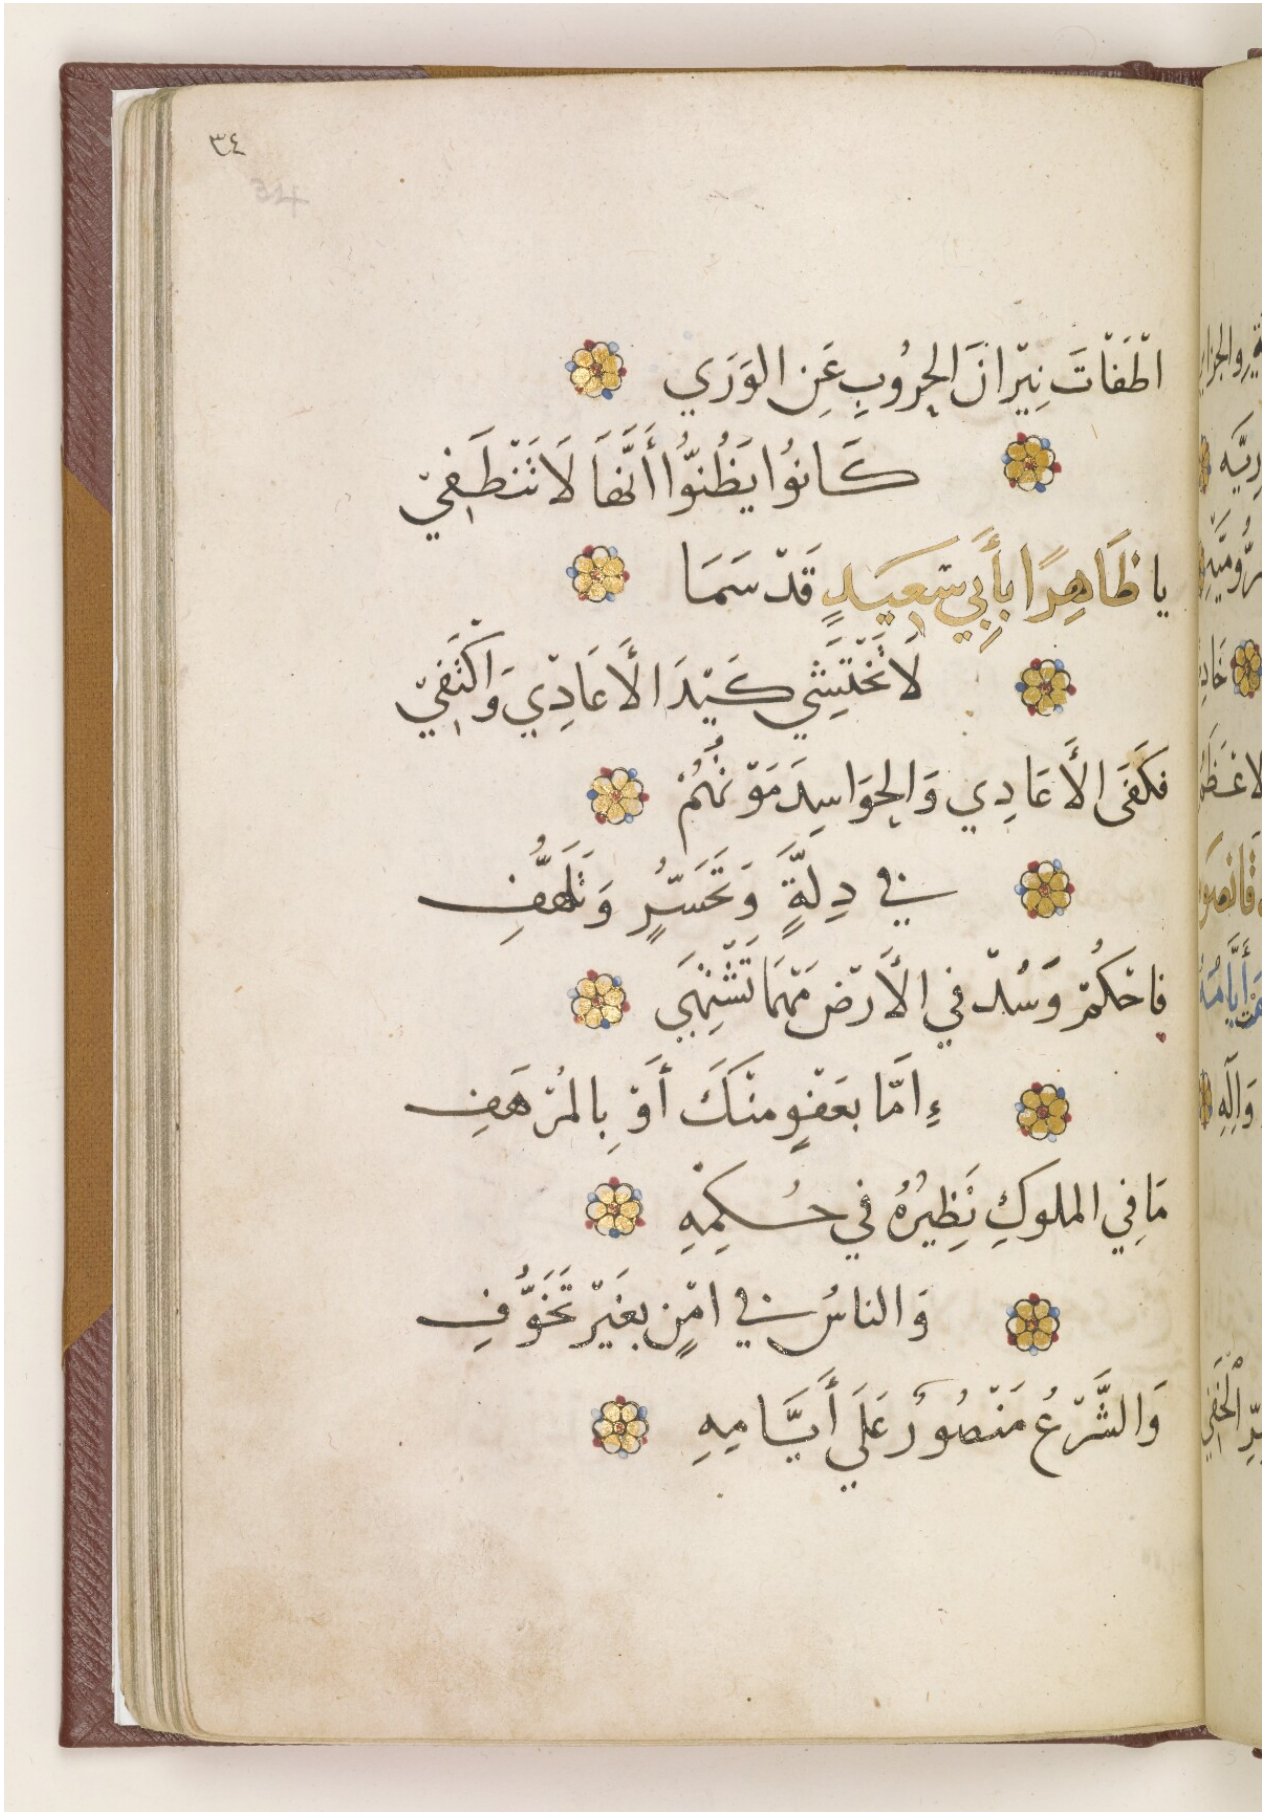 ٣٤
34
اطْفَاْتَ نِيْرَانَ الحرُوبِ عَنِ الوَرَي
كَانوُا يَظُنّوُا أَنَّهَا لَا تَنْطَفِيْ
يا ظَاهِرًا بأَبِي سَعِيَدٍ قَدْ سَمَا
لَا تَخْتَشِي كَيْدَ الأَعَادِيْ وَاكْتَفِيْ
فكَفَى الأَعَادِي وَالحوَاسِدَ مَوْتهُمْ
في دِلَّةٍ وَتَحَسّرٍ وَتَلَهُّفِ
فاحْكُمْ وَسُدْ في الأَرْض مَهْمَا تَشْتِهَي
ءِامَّا بعَفْوٍ منْكَ أَوْ بِالمُرْهَفِ
مَا فِي الملوكِ نَظِيرُهُ في حُكمِهِ
وَالناسُ في امْنٍ بغَيْر تَخَوُّفِ
وَالشَّرْعُ مَنْصُورٌ عَلَي أَيَّامِهِ